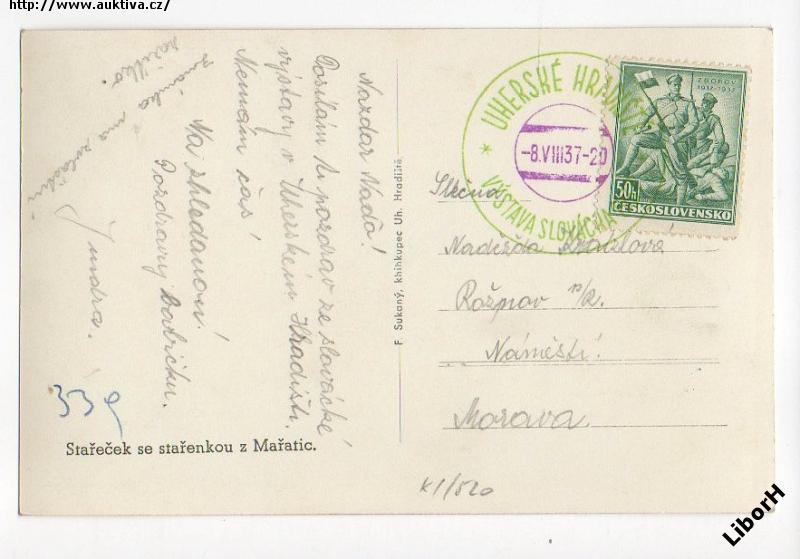 http://www.auktiva.cz/
Nazdar Naďa!
Posílám ti pozdrav ze slovácké
výstavy v Uherském Hradišti.
Nemám čas!
Na shledanou!
Pozdravuj
Jindra.
známka má
razítko.
339
Stařeček se stařenkou z Mařatic.
F. Sukaný, knihkupec Uh. Hradiště
* UHERSKÉ
-8.VIII37-20
VÝSTAVA SLOVÁCKA
ZBOROV
1917-1937
50h
ČESKOSLOVENSKO
Slečna
Naděžda
Rožnov p/R.
Náměstí.
Morava.
K1/520
LiborH